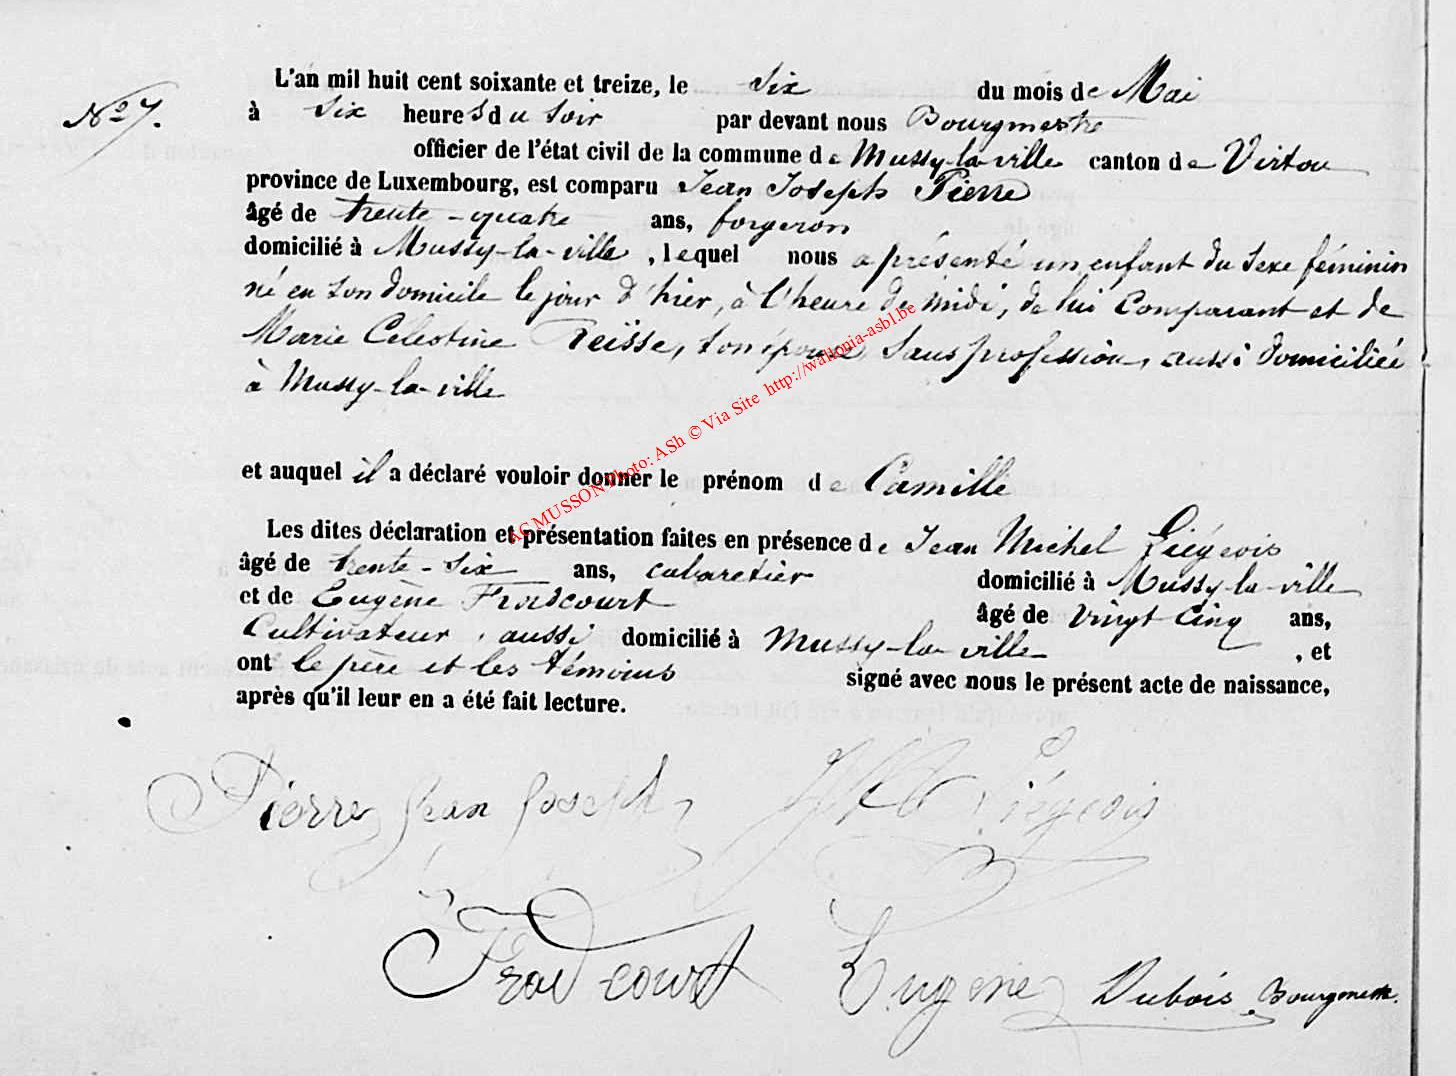 L'an mil huit cent soixante et treize, le six du mois de Mai
N° 7. à six heures du soir par devant nous Bourgmestre
officier de l'état civil de la commune de Mussy-la-ville canton de Virton
province de Luxembourg, est comparu Jean Joseph Pierre
âgé de trente-quatre ans, forgeron
domicilié à Mussy-la-ville, lequel nous a présenté un enfant du sexe féminin
né en son domicile le jour d'hier, à l'heure de midi, de lui Comparant et de
Marie Célestine Reisse, son épouse, sans profession, aussi domiciliée
à Mussy-la-ville
et auquel il a déclaré vouloir donner le prénom de Camille
Les dites déclaration et présentation faites en présence de Jean Michel Liégeois
âgé de trente-six ans, cabaretier domicilié à Mussy-la-ville
et de Eugène Froidcourt âgé de vingt cinq ans,
Cultivateur, aussi domicilié à Mussy-la-ville, et
ont le père et les témoins signé avec nous le présent acte de naissance,
après qu'il leur en a été fait lecture.
Pierre Jean Joseph Liégeois
Froidcourt Eugène Dubois Bourgmestre.
AC MUSSON Photo: ASh © Via Site http://wallonia-asbl.be